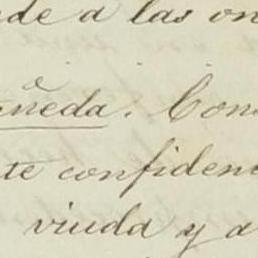 de a las on
añeda. Con
te confiden
viuda y a